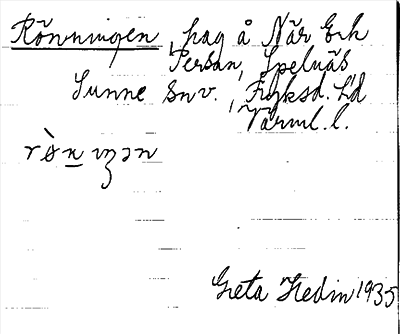 Rönningen, hag å När Erk
Persan, Spelnäs,
Sunne Snv., Fryksd. hd
Värml. l.
rön iŋən
Greta Hedin 1935